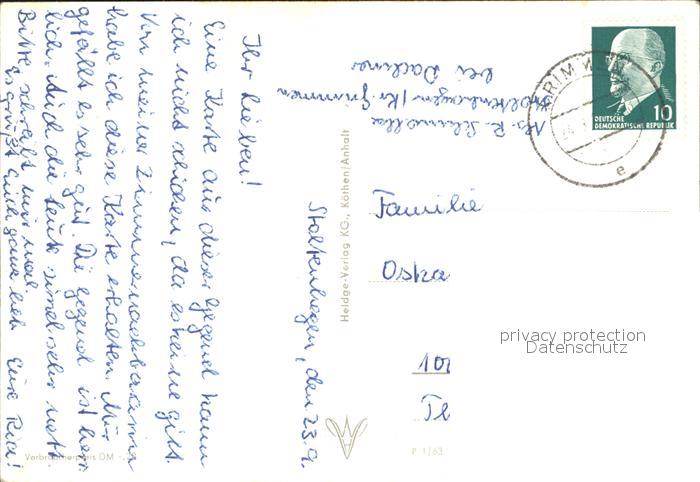 Stoltenhagen, den 23.9.
Ihr Lieben!
Eine Karte aus dieser Gegend kann
ich nicht schicken, da es keine gibt.
Von meiner Zimmernachbarinin
habe ich diese Karte erhalten. Mir
gefällt es sehr gut. Die Gegend ist herr-
lich. Auch die Leute sind sehr nett.
Bitte schreibt mir mal
Es grüßt Euch ganz lieb Eure Ria!
Abs. R.
Stoltenhagen / Kr. Grimmen
bei
Familie
Oska
101
Te
DEUTSCHE
DEMOKRATISCHE REPUBLIK
10
GRIMMEN
e
Heldge-Verlag KG., Köthen/Anhalt
P 1/63
Verbraucherpreis DM -.
privacy protection
Datenschutz